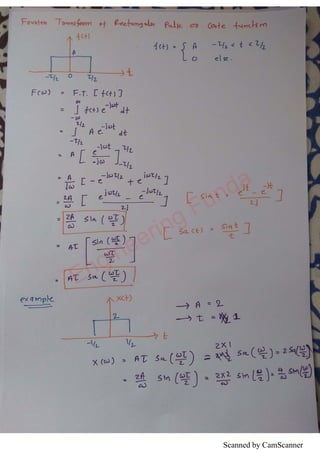 Fourier Transform of Rectangular Pulse or Gate function
f(t)
A
-τ/2 0 τ/2 t
f(t) = { A -τ/2 < t < τ/2
0 else.
F(ω) = F.T. [f(t)]
= ∫_{-∞}^{∞} f(t) e^{-jωt} dt
= ∫_{-τ/2}^{τ/2} A e^{-jωt} dt
= A [ e^{-jωt} / -jω ]_{-τ/2}^{τ/2}
= A/jω [ - e^{-jωτ/2} + e^{jωτ/2} ]
= 2A/ω [ (e^{jωτ/2} - e^{-jωτ/2}) / 2j ] [ sin t = (e^{jt} - e^{-jt}) / 2j ]
= 2A/ω sin (ωτ/2)
= Aτ [ sin (ωτ/2) / (ωτ/2) ] [ Sa(t) = sin t / t ]
= Aτ Sa (ωτ/2)
Engineering Funda
example
x(t)
2
-1/2 1/2 t
→ A = 2
→ τ = 1
X(ω) = Aτ Sa (ωτ/2) = 2×1 Sa (ω/2) = 2 Sa(ω/2)
= 2A/ω sin (ωτ/2) = 2×2/ω sin (ω/2) = 4/ω sin(ω/2)
Scanned by CamScanner